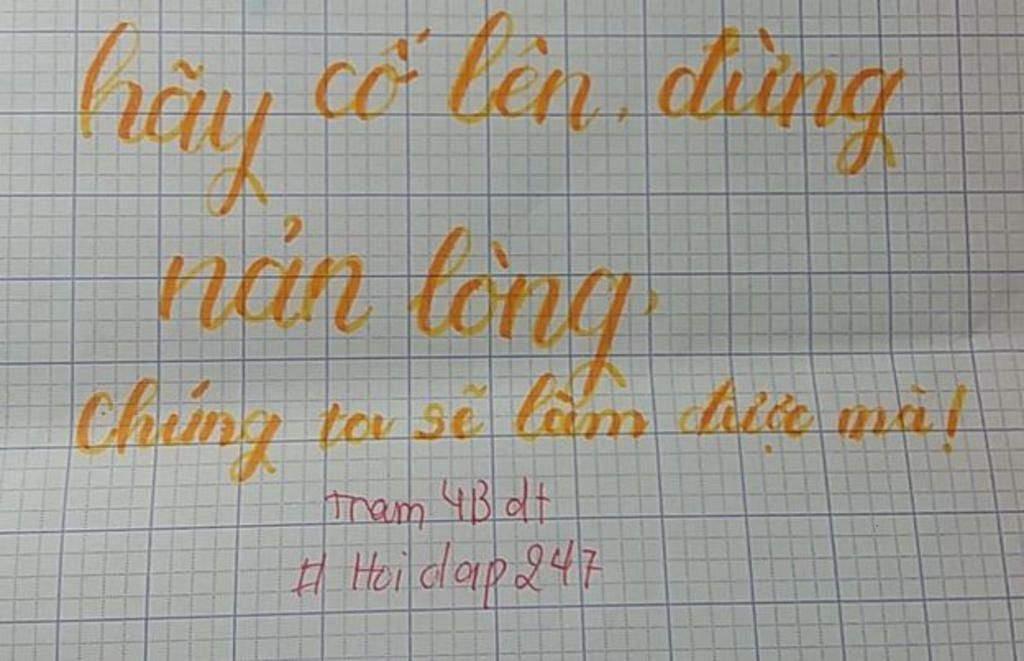 hãy cố lên, đừng
nản lòng,
Chúng ta sẽ làm được mà!
tram 4B dt
# Hoi dap 247